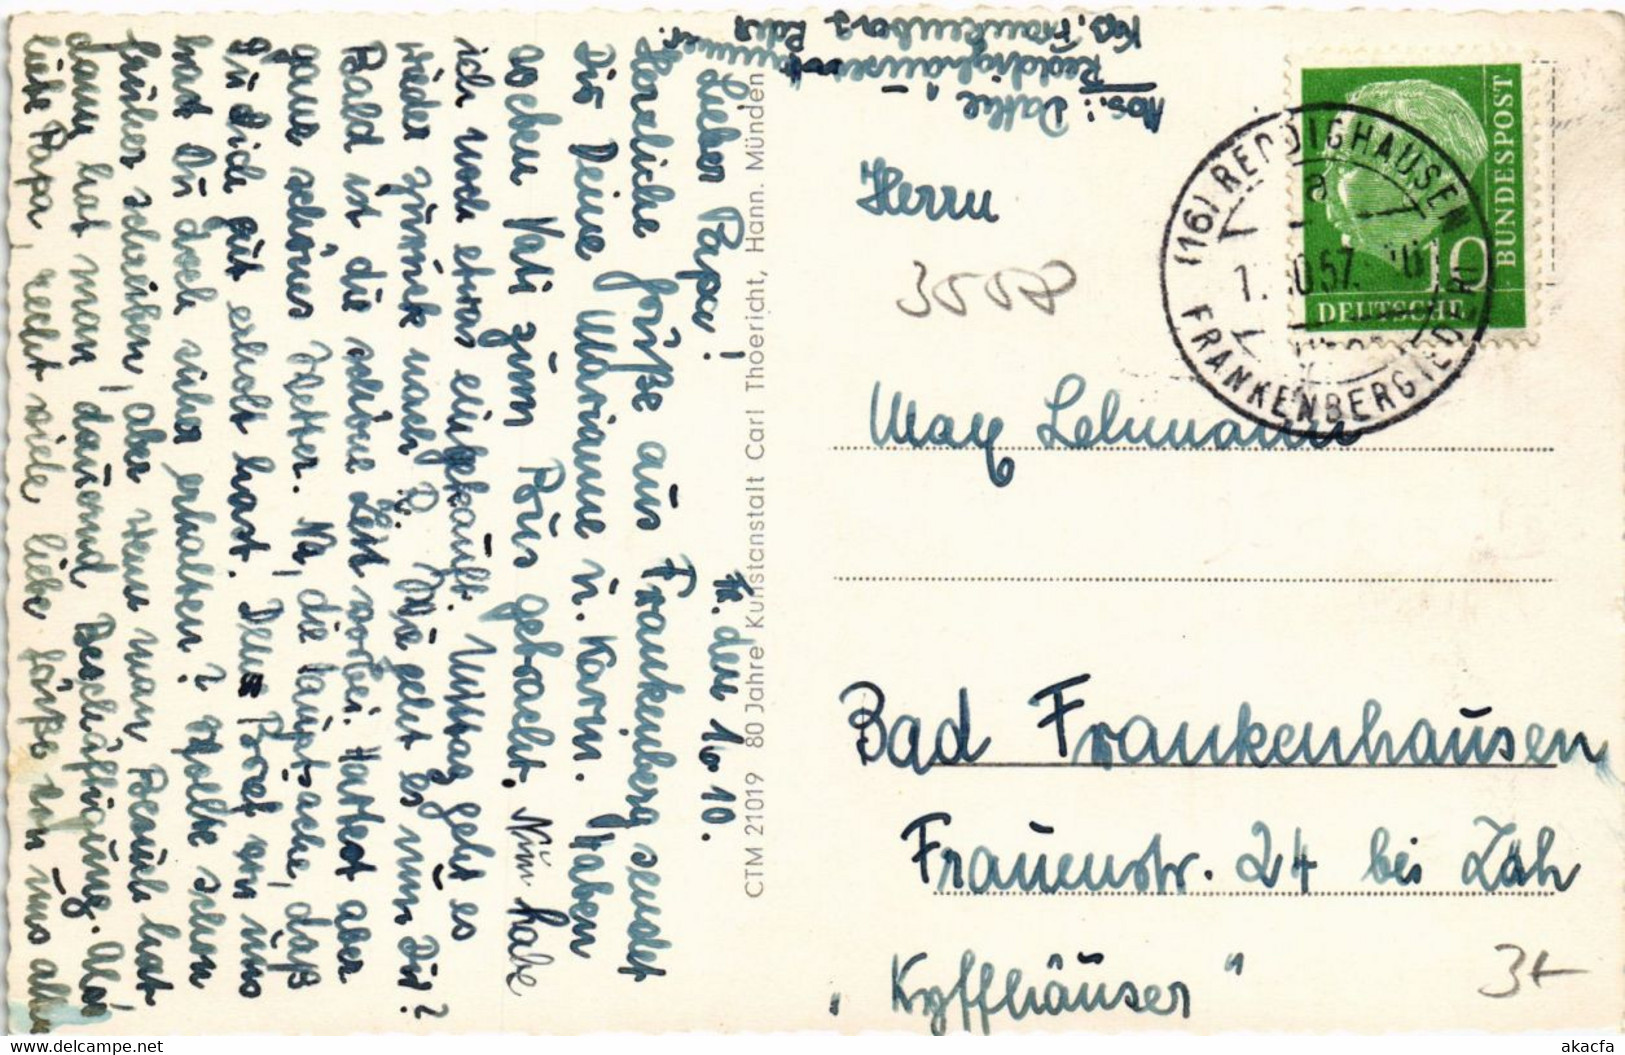 Fr. den 1. 10.
Lieber Papa!
Herzliche Grüße aus Frankenberg sendet
Dir Deine Marianne u. Karin. Haben
soeben Vati zum Bus gebracht. Nun habe
ich noch etwas eingekauft. Mittag geht es
wieder zurück nach R. Wie geht es nun Dir?
Bald ist die schöne Zeit vorbei. Hattest aber
ganz schönes Wetter. Na, die Hauptsache, daß
Du Dich gut erholt hast. Den Brief von uns
hast Du doch sicher erhalten? Wollte schon
früher schreiben, aber wenn man Besuch hat
dann hat man dauernd Beschäftigung. Also
liebe Papa, recht viele liebe Grüße von uns allen
CTM 21019 80 Jahre Kunstanstalt Carl Thoericht, Hann. Münden
Abs.: Dalke
Reddighausen
Krs. Frankenberg Eder
(16) REDDIGHAUSEN
a
1. 10.57.
FRANKENBERG (EDER)
10
DEUTSCHE
BUNDESPOST
Herrn
3558
Max Lehmann
Bad Frankenhausen
Frauenstr. 24 bei Zah
"Kyffhäuser"
3+
akacfa